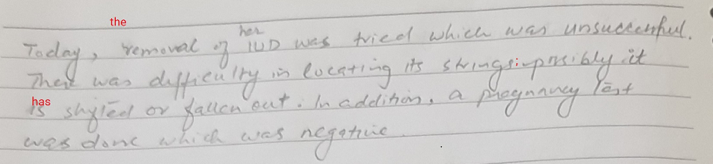 the
Today, removal of her IUD was tried which was unsuccessful.
There was difficulty in locating its strings: possibly it
has
is shifted or fallen out. In addition, a pregnancy test
was done which was negative.